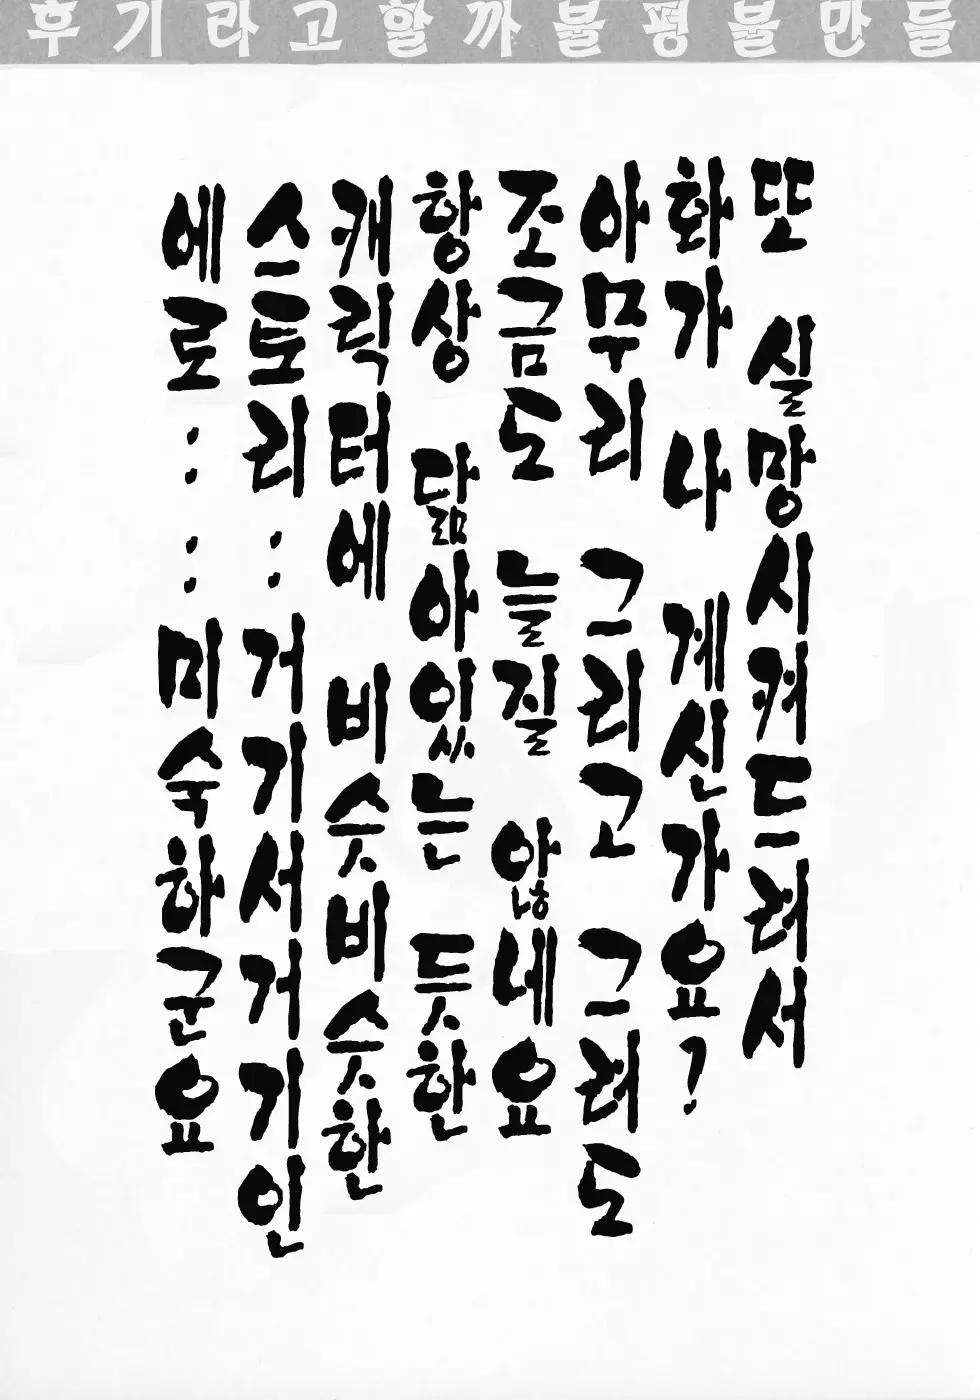 후기라고할까불평불만들
또 실망시켜드려서
화가 나 계신가요?
아무리 그리고 그려도
조금도 늘질 않네요
항상 닮아있는 듯한
캐릭터에 비슷비슷한
스토리: 거기서거기인
에로::미숙하군요